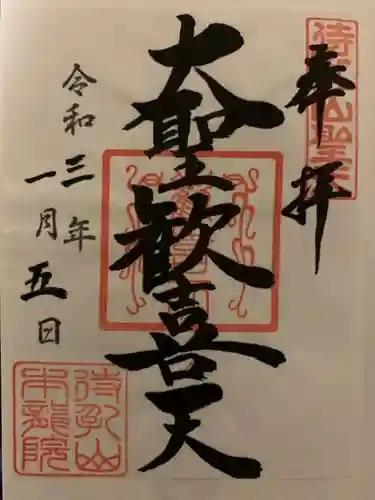 奉拝
待乳山聖天
大聖歓喜天
令和三年
一月五日
待乳山
本龍院